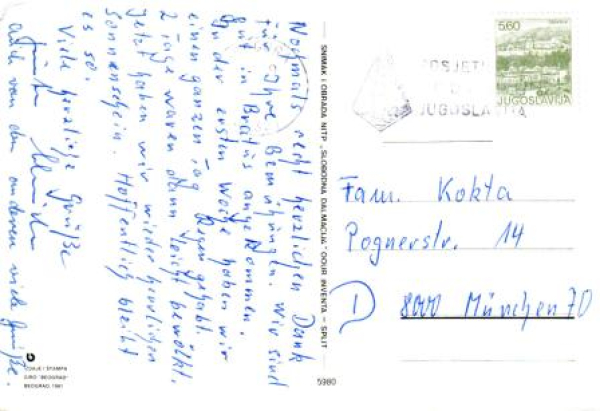 Nochmals recht herzlichen Dank
für Ihre Bemühungen. Wir sind
gut in angekommen.
In der ersten Woche haben wir
einen ganzen Tag Regen gehabt.
2 Tage waren dann leicht bewölkt.
Jetzt haben wir wieder herrlichen
Sonnenschein. Hoffentlich bleibt
es so.
Viele herzliche Grüße
auch von den anderen viele Grüße.
SNIMAK I OBRADA NITP „SLOBODNA DALMACIJA" OOUR INVENTA – SPLIT
5980
IZDAJE I ŠTAMPA
BEOGRAD 1981
5.60
JUGOSLAVIJA
JUGOSLAVIJA
Fam. Kokta
Pognerstr. 14
D 8000 München 70